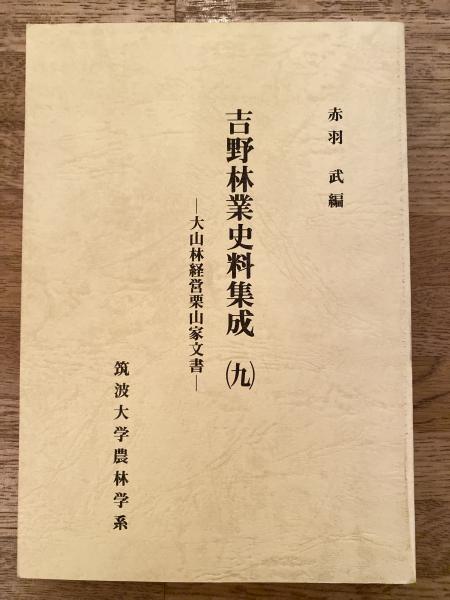 赤羽 武編
吉野林業史料集成(九)
―大山林経営栗山家文書―
筑波大学農林学系